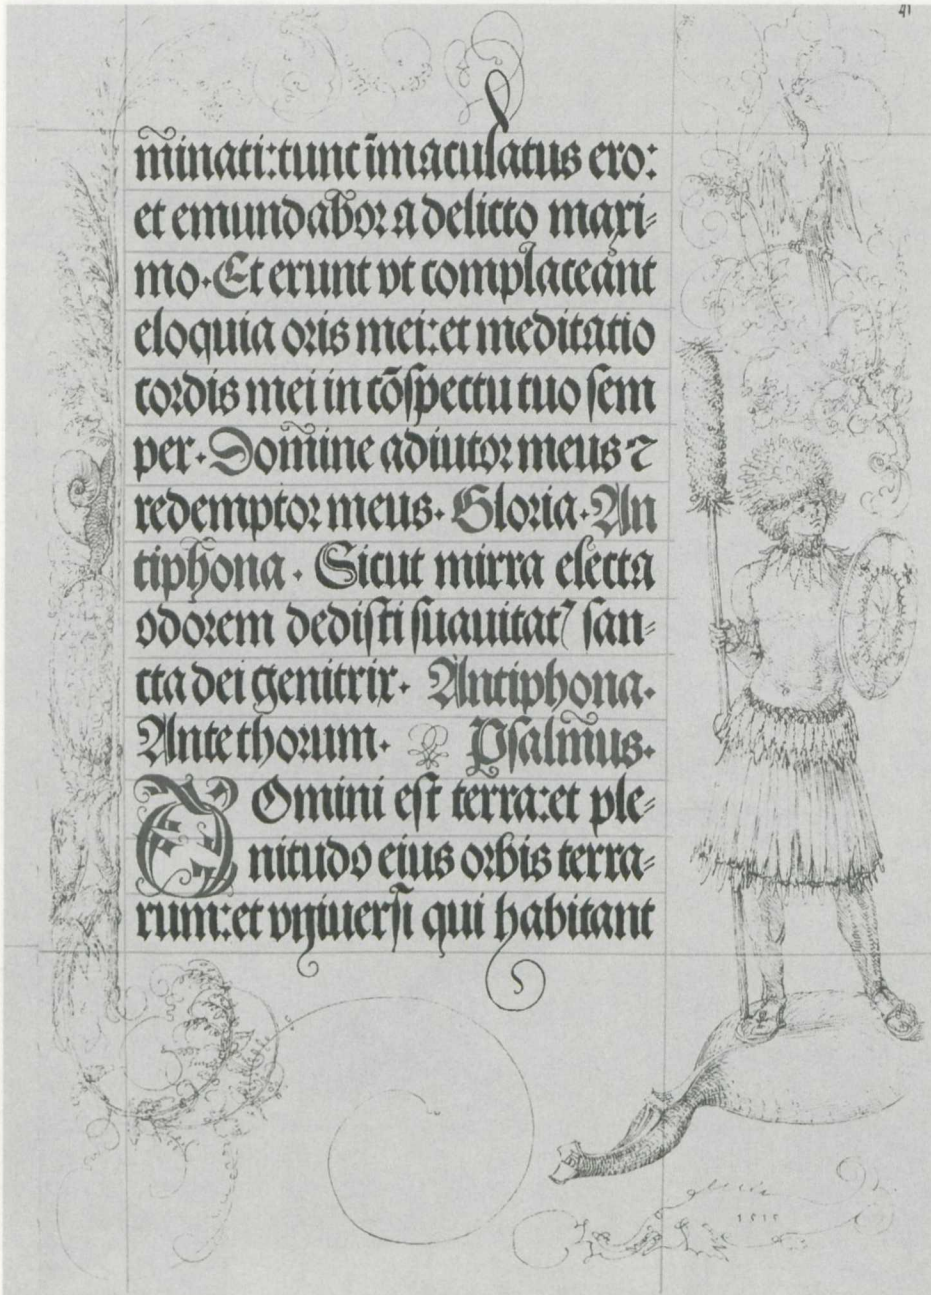 41
m̄inati:tunc īmaculatus ero:
et emundabor a delicto maxi⸗
mo. Et erunt vt complaceant
eloquia oris mei: et meditatio
cordis mei in cōspectu tuo sem
per. Dom̄ine adiutor meus ⁊
redemptor meus. Gloria. An
tiphona. Sicut mirra electa
odorem dedisti suauitat᷒ san⸗
cta dei genitrix. Antiphona.
Ante thorum. Psalm̄us.
Domini est terra: et ple⸗
nitudo eius orbis terra⸗
rum: et vniuersi qui habitant
1515